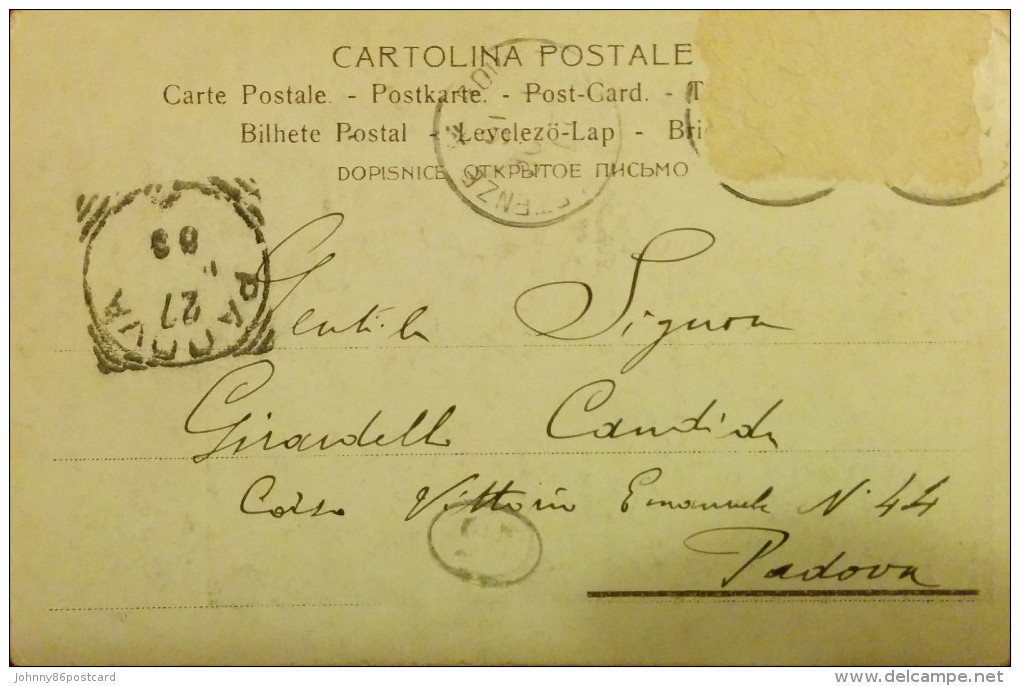 CARTOLINA POSTALE
Carte Postale. - Postkarte. - Post-Card. - T
Bilhete Postal - Levelezö-Lap - Bri
DOPISNICE ОТКРЫТОЕ ПИСЬМО
PADOVA
27
Gentile Signora
Girardello Candida
Corso Vittorio Emanuele N. 44
Padova
Johnny86postcard
delcampe.net